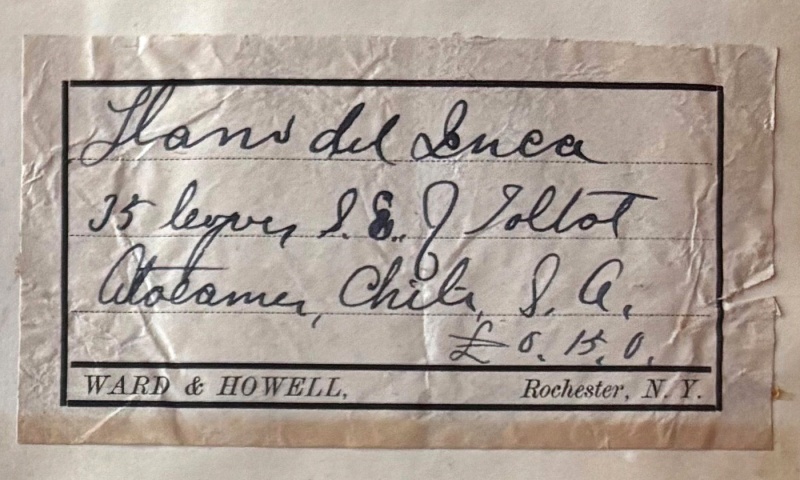 Llano del Inca
35 leguas S. E. of Taltal
Atacama, Chili, S. A.
£ 0. 15. 0.
WARD & HOWELL, Rochester, N. Y.